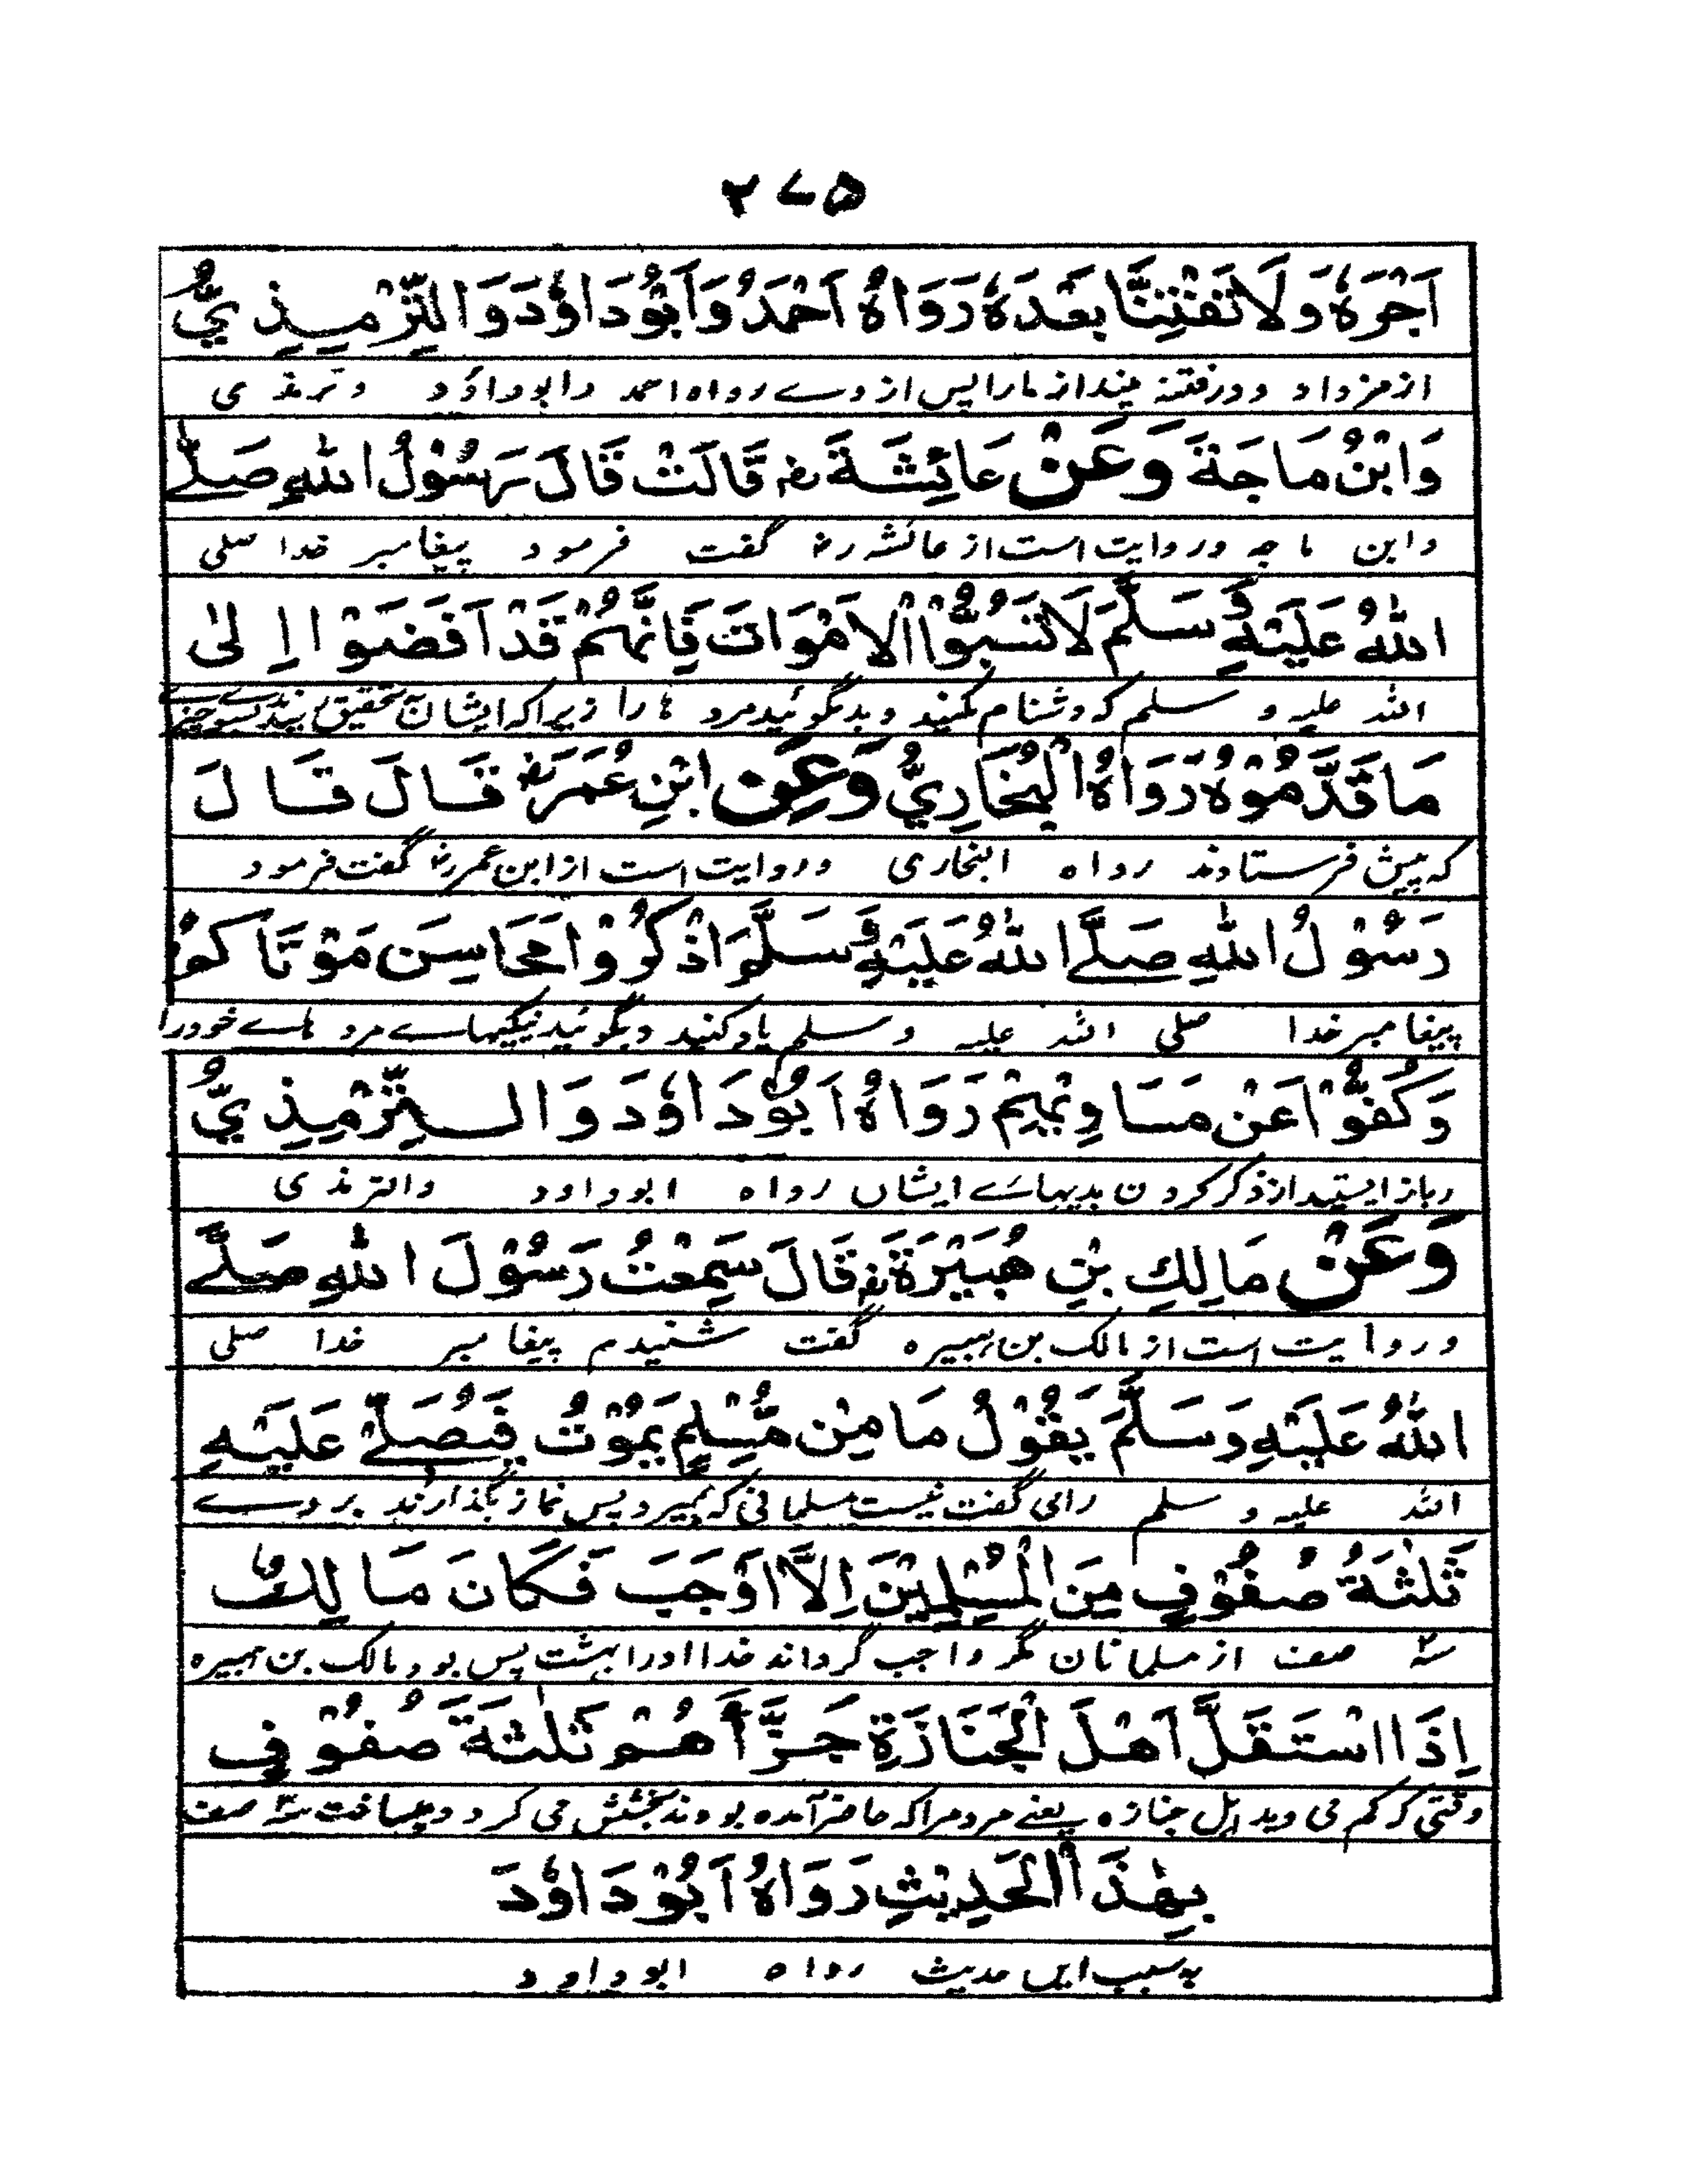 ۲۷۵
اَجْرَهٗ وَلَا تَفْتِنَّا بَعْدَهٗ رَوَاهُ اَحْمَدُ وَاَبُوْدَاوٗدَ وَالتِّرْمِذِيُّ
از مزد او و در فتنه مینداز مارا پس از وے رواه احمد وابوداؤد وترمذی
وَابْنُ مَاجَةَ وَعَنْ عَائِشَةَ رض قَالَتْ قَالَ رَسُوْلُ اللهِ صَلَّے
وابن ماجه وروایت است از عائشه رض گفت فرمود پیغامبر خدا صلی
اللهُ عَلَيْهِ وَسَلَّمَ لَا تَسُبُّوا الْاَمْوَاتَ فَاِنَّهُمْ قَدْ اَفْضَوْا اِلٰی
الله علیه و سلم که دشنام مکنید و بد مگوئید مرد ها را زیراکه ایشان تحقیق بسوے چیزے
مَا قَدَّمُوْهُ رَوَاهُ الْبُخَارِيُّ وَعَنِ ابْنِ عُمَرَ رض قَالَ قَالَ
که پیش فرستادند رواه البخاری وروایت است از ابن عمر رض گفت فرمود
رَسُوْلُ اللهِ صَلَّے اللهُ عَلَيْهِ وَسَلَّمَ اذْكُرُوْا مَحَاسِنَ مَوْتَاكُمْ
پیغامبر خدا صلی الله علیه وسلم یاد کنید وبگوئید نیکیهاے مرد هاے خود را
وَكُفُّوْا عَنْ مَسَاوِيْهِمْ رَوَاهُ اَبُوْدَاوٗدَ وَالتِّرْمِذِيُّ
وباز ایستید از ذکر کردن بدیهاے ایشاں رواه ابوداود والترمذی
وَعَنْ مَالِكِ بْنِ هُبَيْرَةَ رض قَالَ سَمِعْتُ رَسُوْلَ اللهِ صَلَّے
وروایت است از مالک بن هبیره گفت شنیدم پیغامبر خدا صلی
اللهُ عَلَيْهِ وَسَلَّمَ يَقُوْلُ مَا مِنْ مُّسْلِمٍ يَمُوْتُ فَيُصَلِّے عَلَيْهِ
الله علیه و سلم را می گفت نیست مسلمانی که بمیرد پس نماز بگذارند بر وے
ثَلٰثَةُ صُفُوْفٍ مِنَ الْمُسْلِمِيْنَ اِلَّا اَوْجَبَ فَكَانَ مَالِكٌ
سه صف از مسلمانان مگر واجب گرداند خدا اورا بهشت پس بود مالک بن هبیره
اِذَا اسْتَقَلَّ اَهْلَ الْجَنَازَةِ جَزَّأَهُمْ ثَلٰثَةَ صُفُوْفٍ
وقتی که کم می دید اهل جنازه یعنے مردمرا که حاضر آمده بودند بخشش می کرد ومیساخت سه صف
بِهٰذَا الْحَدِيْثِ رَوَاهُ اَبُوْدَاوٗدَ
به سبب ایں حدیث رواه ابوداود